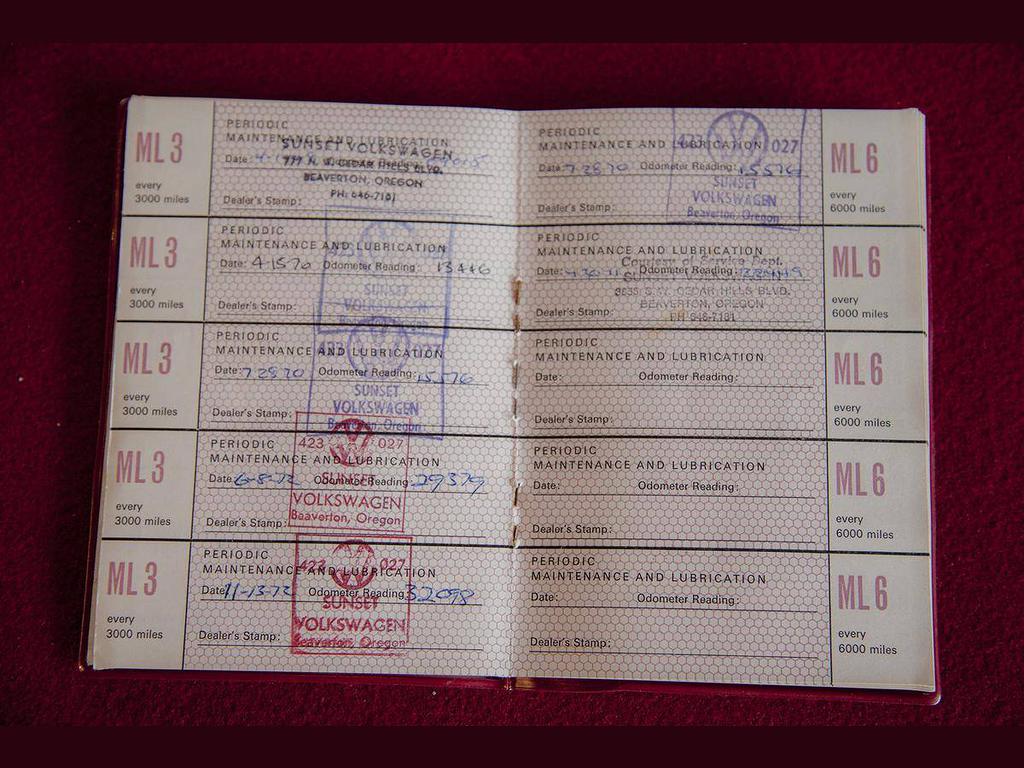 ML 3
every
3000 miles
PERIODIC
MAINTENANCE AND LUBRICATION
Date: Odometer Reading:
SUNSET VOLKSWAGEN
BEAVERTON, OREGON
PH: 646-7101
Dealer's Stamp:
ML 3
every
3000 miles
PERIODIC
MAINTENANCE AND LUBRICATION
Date: 4-15 70 Odometer Reading: 13446
Dealer's Stamp:
423
SUNSET
VOLKSWAGEN
ML 3
every
3000 miles
PERIODIC
MAINTENANCE AND LUBRICATION
Date: 7 28 70 Odometer Reading: 15576
Dealer's Stamp:
423 027
SUNSET
VOLKSWAGEN
Beaverton, Oregon
ML 3
every
3000 miles
PERIODIC
MAINTENANCE AND LUBRICATION
Date: 6-8-72 Odometer Reading: 29379
Dealer's Stamp:
423 027
SUNSET
VOLKSWAGEN
Beaverton, Oregon
ML 3
every
3000 miles
PERIODIC
MAINTENANCE AND LUBRICATION
Date: 11-13-72 Odometer Reading: 32098
Dealer's Stamp:
423 027
SUNSET
VOLKSWAGEN
Beaverton, Oregon
PERIODIC
MAINTENANCE AND LUBRICATION
Date: 7-28 70 Odometer Reading: 15576
Dealer's Stamp:
423 027
SUNSET
VOLKSWAGEN
Beaverton, Oregon
ML 6
every
6000 miles
PERIODIC
MAINTENANCE AND LUBRICATION
Date: Odometer Reading:
Dealer's Stamp:
Courtesy of Service Dept.
S.W. CEDAR HILLS BLVD.
BEAVERTON, OREGON
PH 646-7181
ML 6
every
6000 miles
PERIODIC
MAINTENANCE AND LUBRICATION
Date: Odometer Reading:
Dealer's Stamp:
ML 6
every
6000 miles
PERIODIC
MAINTENANCE AND LUBRICATION
Date: Odometer Reading:
Dealer's Stamp:
ML 6
every
6000 miles
PERIODIC
MAINTENANCE AND LUBRICATION
Date: Odometer Reading:
Dealer's Stamp:
ML 6
every
6000 miles